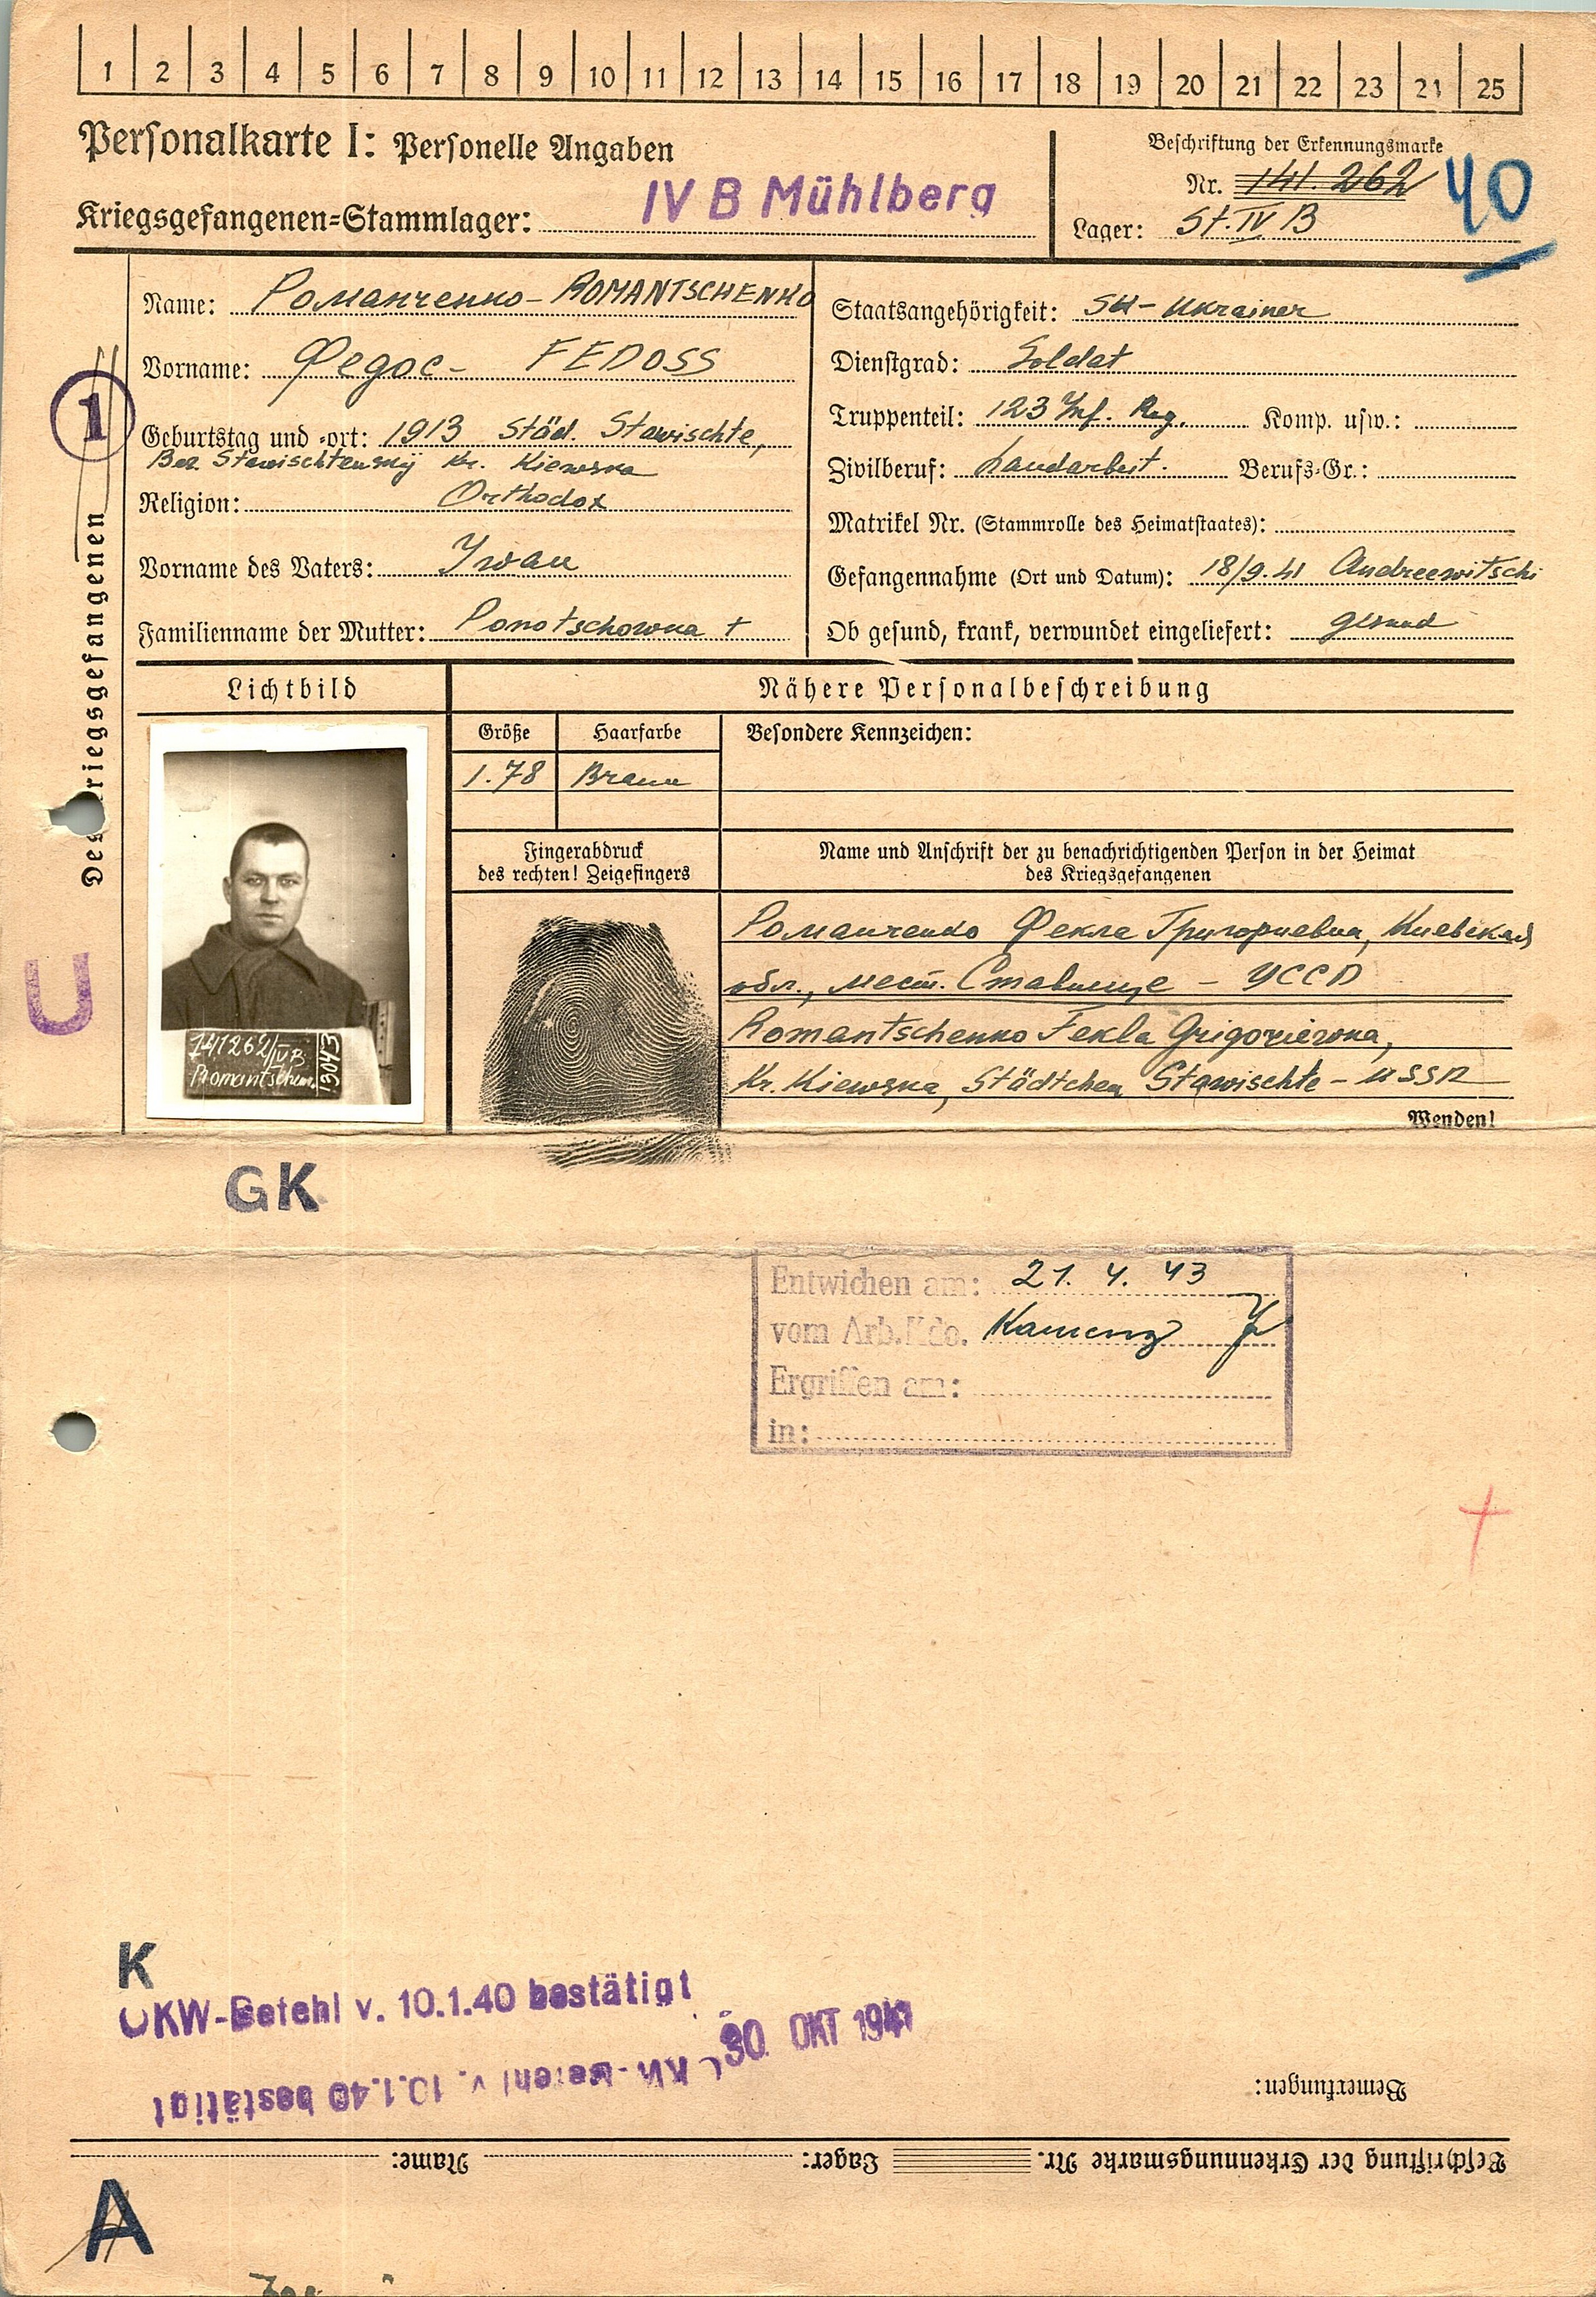 1 2 3 4 5 6 7 8 9 10 11 12 13 14 15 16 17 18 19 20 21 22 23 24 25
Personalkarte I: Personelle Angaben
Kriegsgefangenen=Stammlager: IV B Mühlberg
Beschriftung der Erkennungsmarke
Nr. 141.262
40
Lager: St. IV B
1
Des Kriegsgefangenen
U
Name: Романченко - ROMANTSCHENKO
Vorname: Федос - FEDOSS
Geburtstag und =ort: 1913 Städ. Stawischte,
Bez. Stawischtenskij Kr. Kiewska
Religion: Orthodox
Vorname des Vaters: Iwan
Familienname der Mutter: Ponotschowna +
Staatsangehörigkeit: SU - Ukrainer
Dienstgrad: Soldat
Truppenteil: 123 Inf. Reg. Komp. usw.:
Zivilberuf: Landarbeit. Berufs=Gr.:
Matrikel Nr. (Stammrolle des Heimatstaates):
Gefangennahme (Ort und Datum): 18/9.41 Andreewitschi
Ob gesund, krank, verwundet eingeliefert: gesund
Lichtbild
Nähere Personalbeschreibung
Größe Haarfarbe Besondere Kennzeichen:
1.78 Braun
Fingerabdruck
des rechten! Zeigefingers
Name und Anschrift der zu benachrichtigenden Person in der Heimat
des Kriegsgefangenen
Романченко Фекла Григориевна, Киевская
обл., мест. Ставище - УССР
Romantschenko Fekla Grigoriewna,
Kr. Kiewska, Städtchen Stawischte - USSR
Wenden!
141262/IVB
Romantschen.
13043
GK
Entwichen am: 21. 4. 43
vom Arb.Kdo. Kamenz
Ergriffen am:
in:
K
OKW-Befehl v. 10.1.40 bestätigt
30. OKT 1941
OKW-Befehl v. 10.1.40 bestätigt
Bemerkungen:
Beschriftung der Erkennungsmarke Nr. Lager: Name:
A